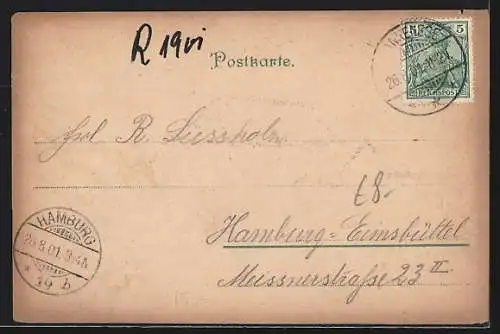 R 19 vi
Postkarte.
5
26.8.01
REICHSPOST
Frl. R. Süssholz
£8.-
Hamburg-Eimsbüttel
Meissnerstraße 23 II
HAMBURG
26.8.01. 3-4 N.
* 19 b